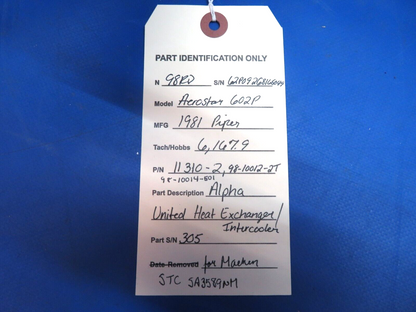 PART IDENTIFICATION ONLY
N 98RD S/N
Model Aerostar 602P
MFG 1981 Piper
Tach/Hobbs 6,167.9
P/N 11310-2, 98-10012-2T
98-10014-501
Part Description Alpha
United Heat Exchanger/
Intercooler
Part S/N 305
Date Removed for Machen
STC SA3589NM